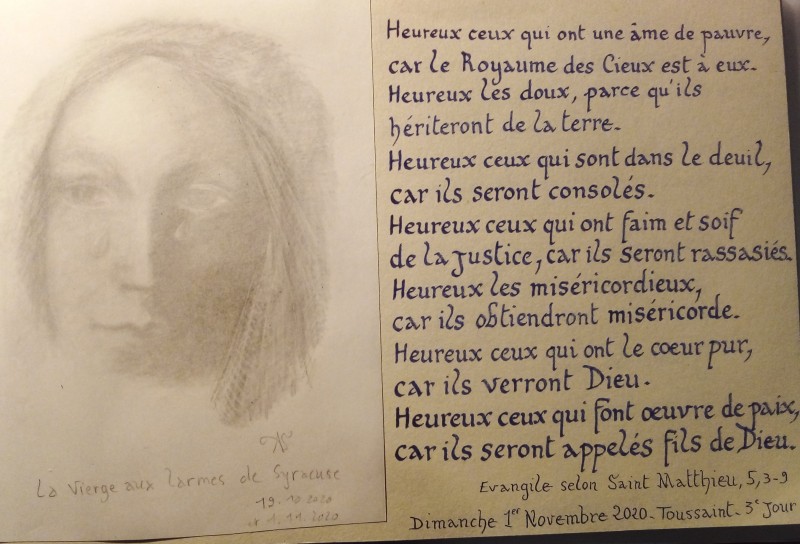 La Vierge aux larmes de Syracuse
19.10.2020
1.11.2020
Heureux ceux qui ont une âme de pauvre,
car le Royaume des Cieux est à eux.
Heureux les doux, parce qu'ils
hériteront de la terre.
Heureux ceux qui sont dans le deuil,
car ils seront consolés.
Heureux ceux qui ont faim et soif
de la justice, car ils seront rassasiés.
Heureux les miséricordieux,
car ils obtiendront miséricorde.
Heureux ceux qui ont le coeur pur,
car ils verront Dieu.
Heureux ceux qui font œuvre de paix,
car ils seront appelés fils de Dieu.
Evangile selon Saint Matthieu, 5, 3-9
Dimanche 1er Novembre 2020. Toussaint. 3e Jour